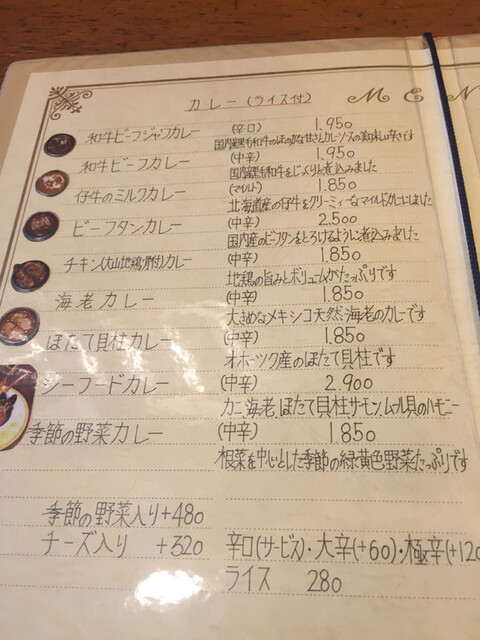 MEN
カレー(ライス付)
和牛ビーフジャワカレー (辛口) 1.950
和牛ビーフカレー (中辛) 1.950
国内産黒毛和牛をじっくりと煮込みました
仔牛のミルクカレー (マイルド) 1.850
北海道産の仔牛をクリーミィーなマイルドカレーにしました
ビーフタンカレー (中辛) 2.500
国内産のビーフタンをとろけるように煮込みました
チキン(大山地鶏骨付)カレー (中辛) 1.850
地鶏の旨みとボリュームがたっぷりです
海老カレー (中辛) 1.850
大きめなメキシコ天然海老のカレーです
ほたて貝柱カレー (中辛) 1.850
オホーツク産のほたて貝柱です
シーフードカレー (中辛) 2.900
カニ海老、ほたて貝柱サーモン、ムール貝のハーモニー
季節の野菜カレー (中辛) 1.850
根菜を中心とした季節の緑黄色野菜たっぷりです
季節の野菜入り+480
チーズ入り +320 辛口(サービス)・大辛(+60)・極辛(+120
ライス 280